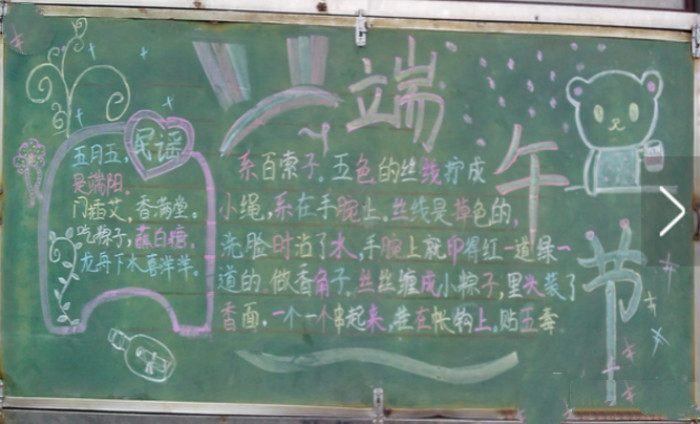 端午节
民谣
五月五，
是端阳。
门插艾，香满堂。
吃粽子，蘸白糖。
龙舟下水喜洋洋。
系百索子。五色的丝线拧成
小绳，系在手腕上。丝线是掉色的，
洗脸时沾了水，手腕上就印得红一道绿一
道的。做香角子。丝丝缠成小粽子，里头装了
香面，一个一个串起来，挂在帐钩上。贴五毒。